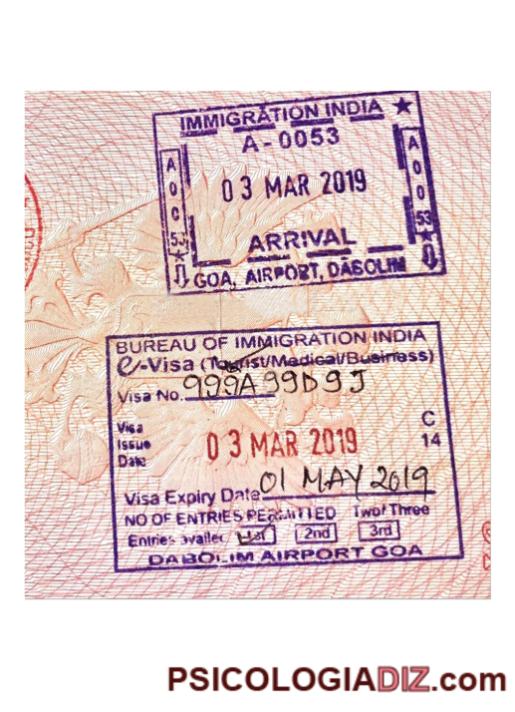 IMMIGRATION INDIA ★
A-0053
03 MAR 2019
ARRIVAL
GOA, AIRPORT, DABOLIM
BUREAU OF IMMIGRATION INDIA
e-Visa (Tourist/Medical/Business)
Visa No. 999A99D9J
Visa
Issue
Date
03 MAR 2019
C
14
Visa Expiry Date 01 MAY 2019
NO OF ENTRIES PERMITTED Two/ Three
Entries 2nd 3rd
DABOLIM AIRPORT GOA
PSICOLOGIADIZ.com